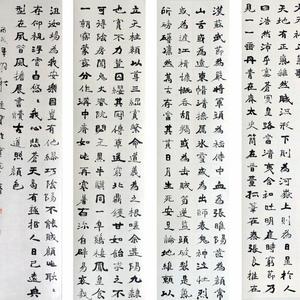 天地有正氣雜然賦流形下則為河嶽上則為日星於人
曰浩然沛乎塞蒼冥皇路當清夷含和吐明庭時窮節乃
見一一垂丹青在齊太史簡在晉董狐筆在秦張良椎在
漢蘇武節為嚴將軍頭為嵇侍中血為張睢陽齒為顏
常山舌或為遼東帽清操厲冰雪或為出師表鬼神泣壯烈
或為渡江楫慷慨吞胡羯或為擊賊笏逆豎頭破裂是氣所
磅礴凜烈萬古存當其貫日月生死安足論地維賴以
立天柱賴以尊三綱實係命道義為之根嗟余遘陽九隸
也實不力楚囚纓其冠傳車送窮北鼎鑊甘如飴求之不
可得陰房闃鬼火春院閟天黑牛驥同一皁雞棲鳳凰食
一朝蒙霧露分作溝中瘠如此再寒暑百沴自辟易嗟哉
沮洳場為我安樂國豈有他繆巧陰陽不能賊顧此耿耿
存仰視浮雲白悠悠我心悲蒼天曷有極哲人日已遠典
型在夙昔風檐展書讀古道照顏色